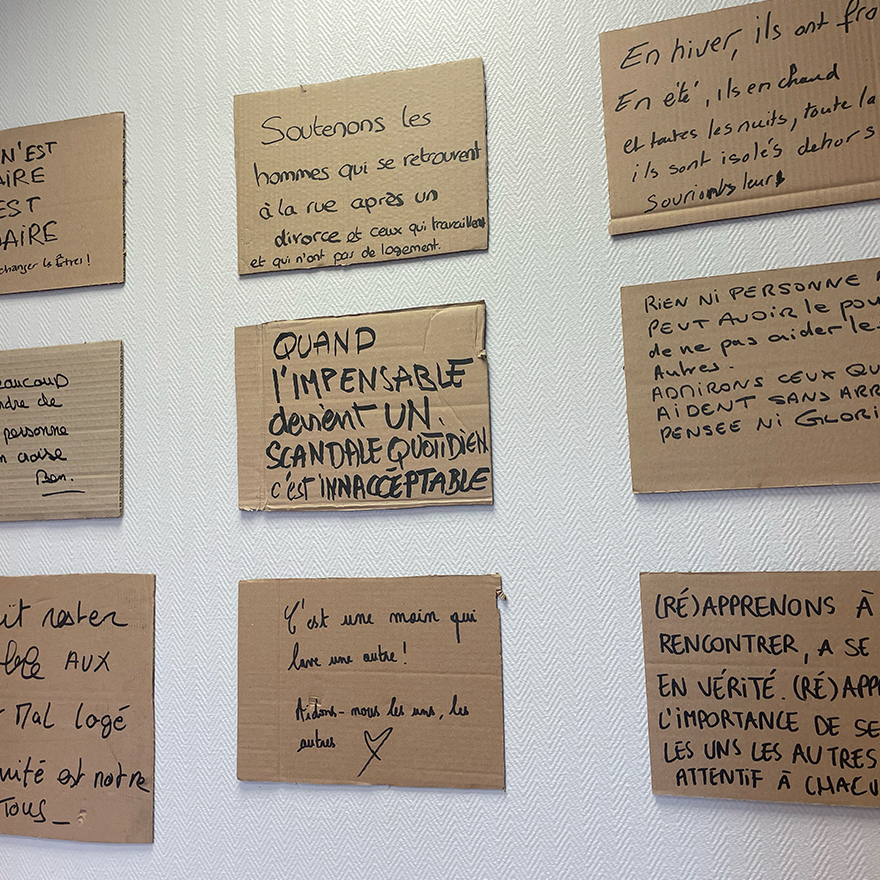 N'EST
AIRE
EST
AIRE
changer les Êtres !
Soutenons les
hommes qui se retrouvent
à la rue après un
divorce et ceux qui travaillent
et qui n'ont pas de logement.
En hiver, ils ont fro
En été, ils en chaud
et toutes les nuits, toute la
ils sont isolés dehors
Sourions leurs
eaucoup
ndre de
personne
n croise
Ben.
QUAND
l'IMPENSABLE
devient UN.
SCANDALE QUOTIDIEN
c'est INNACCEPTABLE
RIEN NI PERSONNE
PEUT AVOIR le pou
de ne pas aider les
Autres.
ADMIRONS CEUX QU
AIDENT SANS ARR
PENSEE NI GLORI
it rester
AUX
Mal logé
uité est notre
TOUS_
C'est une main qui
lave une autre !
Aidons-nous les uns, les
autres
(RÉ)APPRENONS À
RENCONTRER, A SE
EN VÉRITÉ. (RÉ)APP
L'IMPORTANCE DE SE
LES UNS LES AUTRES
ATTENTIF À CHACU